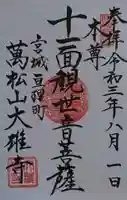 奉拝
令和三年八月一日
本尊
十一面観世音菩薩
宮城亘理町
萬松山大雄寺